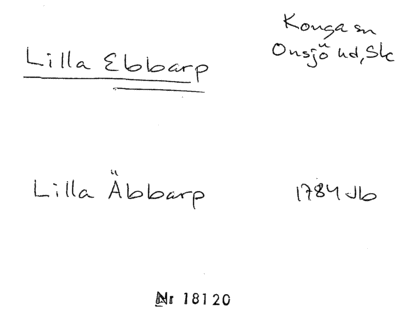 Lilla Ebbarp
Konga sn
Onsjö hd, Sk
Lilla Äbbarp
1784 Jb
Nr 18120